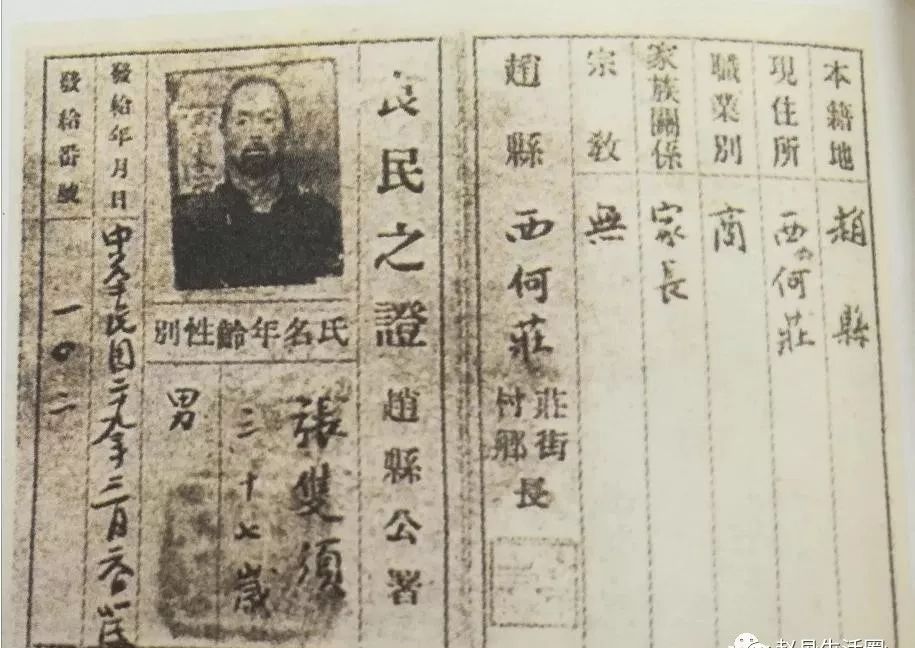 本籍地 趙縣
現住所 西何莊
職業別 商
家族關係 家長
宗教 無
趙縣 西何莊 莊街村鄉長
良民之證 趙縣公署
氏名年齡性別
張雙須
三十七歲
男
發給年月日 中華民国二十九年三月
發給番號 一〇二
赵县生活圈